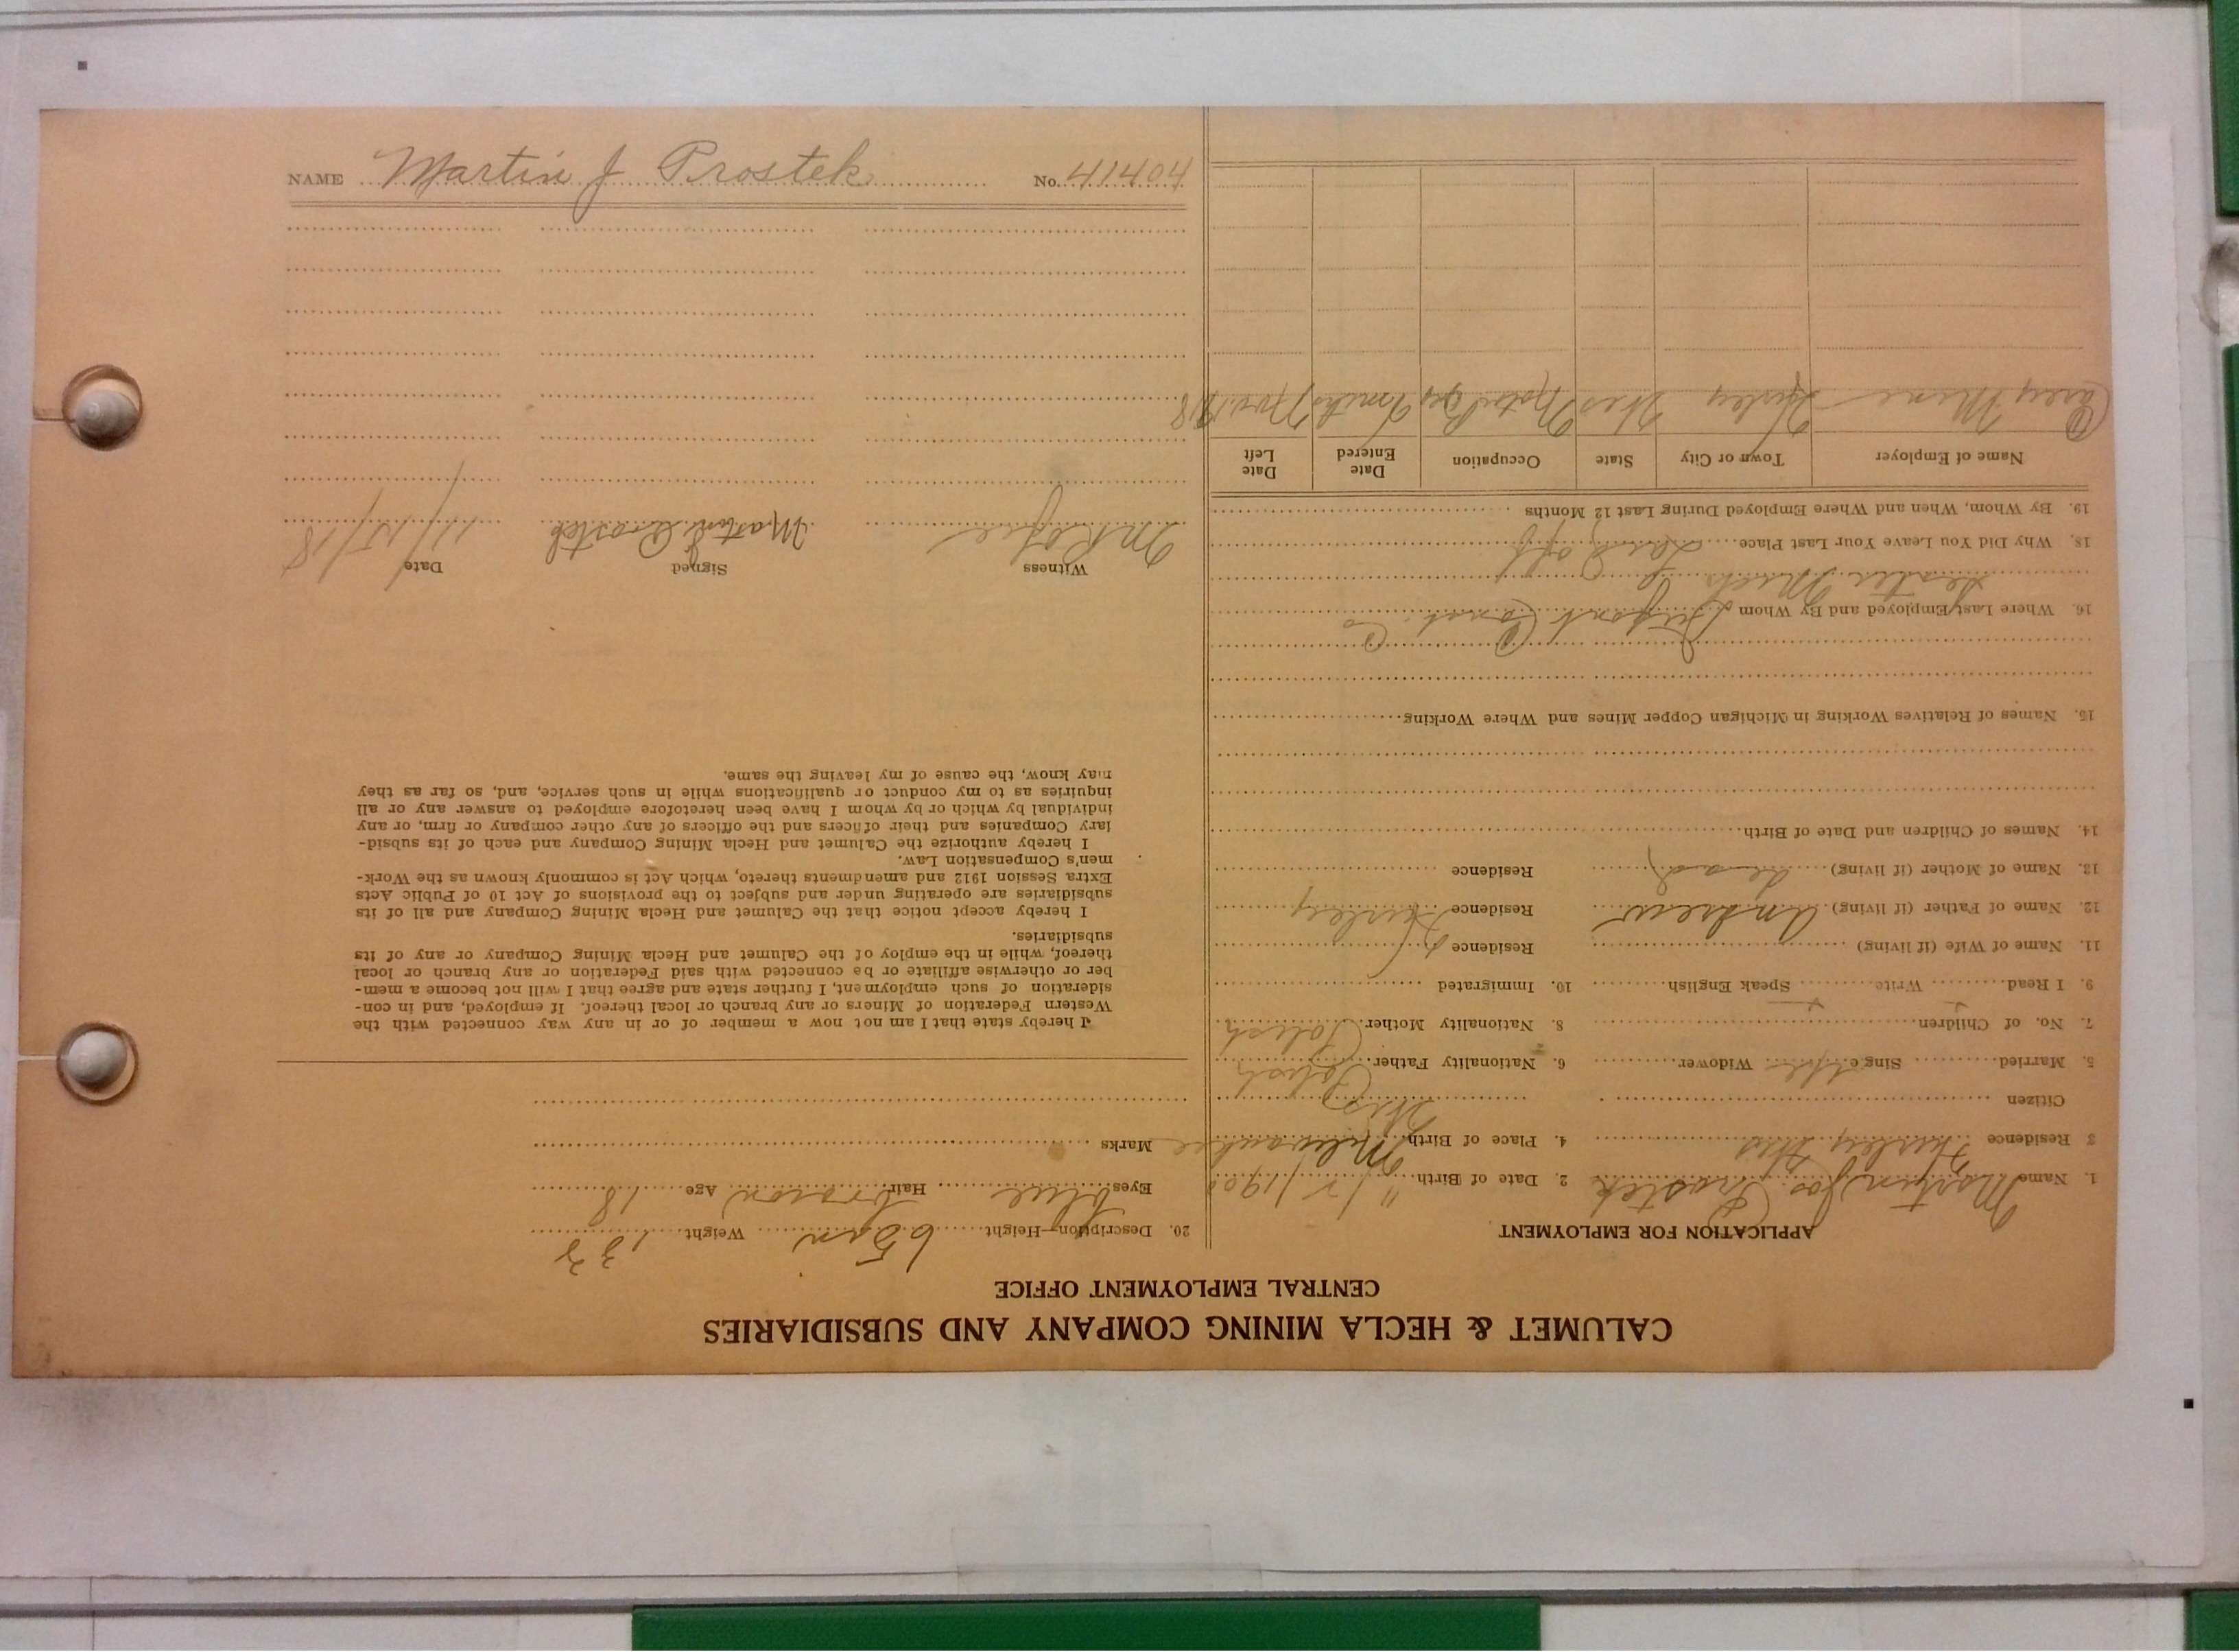 CALUMET & HECLA MINING COMPANY AND SUBSIDIARIES
CENTRAL EMPLOYMENT OFFICE
APPLICATION FOR EMPLOYMENT
1. Name Martin Jos. Prostek 2. Date of Birth
3 Residence Hurley Wis 4. Place of Birth Milwaukee
Wis
Citizen
5. Married Single Widower 6. Nationality Father Polish
7. No. of Children 8. Nationality Mother Polish
9. I Read Write Speak English 10. Immigrated
11. Name of Wife (if living) Residence
12. Name of Father (if living) Andrew Residence Hurley
13. Name of Mother (if living) dead Residence
14. Names of Children and Date of Birth
15. Names of Relatives Working in Michigan Copper Mines and Where Working
16. Where Last Employed and By Whom Dupont Const. Co
Mich
18. Why Did You Leave Your Last Place Laid off
19. By Whom, When and Where Employed During Last 12 Months
Name of Employer Town or City State Occupation Date Entered Date Left
Carey Mine Hurley Wis Motor Nov 1918
20. Description—Height Weight 133
Eyes blue Hair brown Age 18
Marks
I hereby state that I am not now a member of or in any way connected with the
Western Federation of Miners or any branch or local thereof. If employed, and in con-
sideration of such employment, I further state and agree that I will not become a mem-
ber or otherwise affiliate or be connected with said Federation or any branch or local
thereof, while in the employ of the Calumet and Hecla Mining Company or any of its
subsidiaries.
I hereby accept notice that the Calumet and Hecla Mining Company and all of its
subsidiaries are operating under and subject to the provisions of Act 10 of Public Acts
Extra Session 1912 and amendments thereto, which Act is commonly known as the Work-
men's Compensation Law.
I hereby authorize the Calumet and Hecla Mining Company and each of its subsid-
iary Companies and their officers and the officers of any other company or firm, or any
individual by which or by whom I have been heretofore employed to answer any or all
inquiries as to my conduct or qualifications while in such service, and, so far as they
may know, the cause of my leaving the same.
Witness Signed Date
Martin J Prostek 11/15/18
NAME Martin J Prostek No. 41404